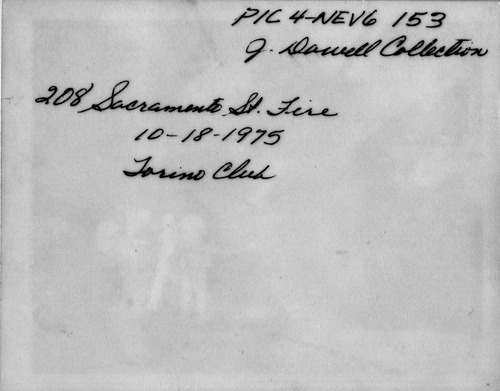 PIC 4-NEV6 153
J. Dowell Collection
208 Sacramento St. Fire
10-18-1975
Torino Club